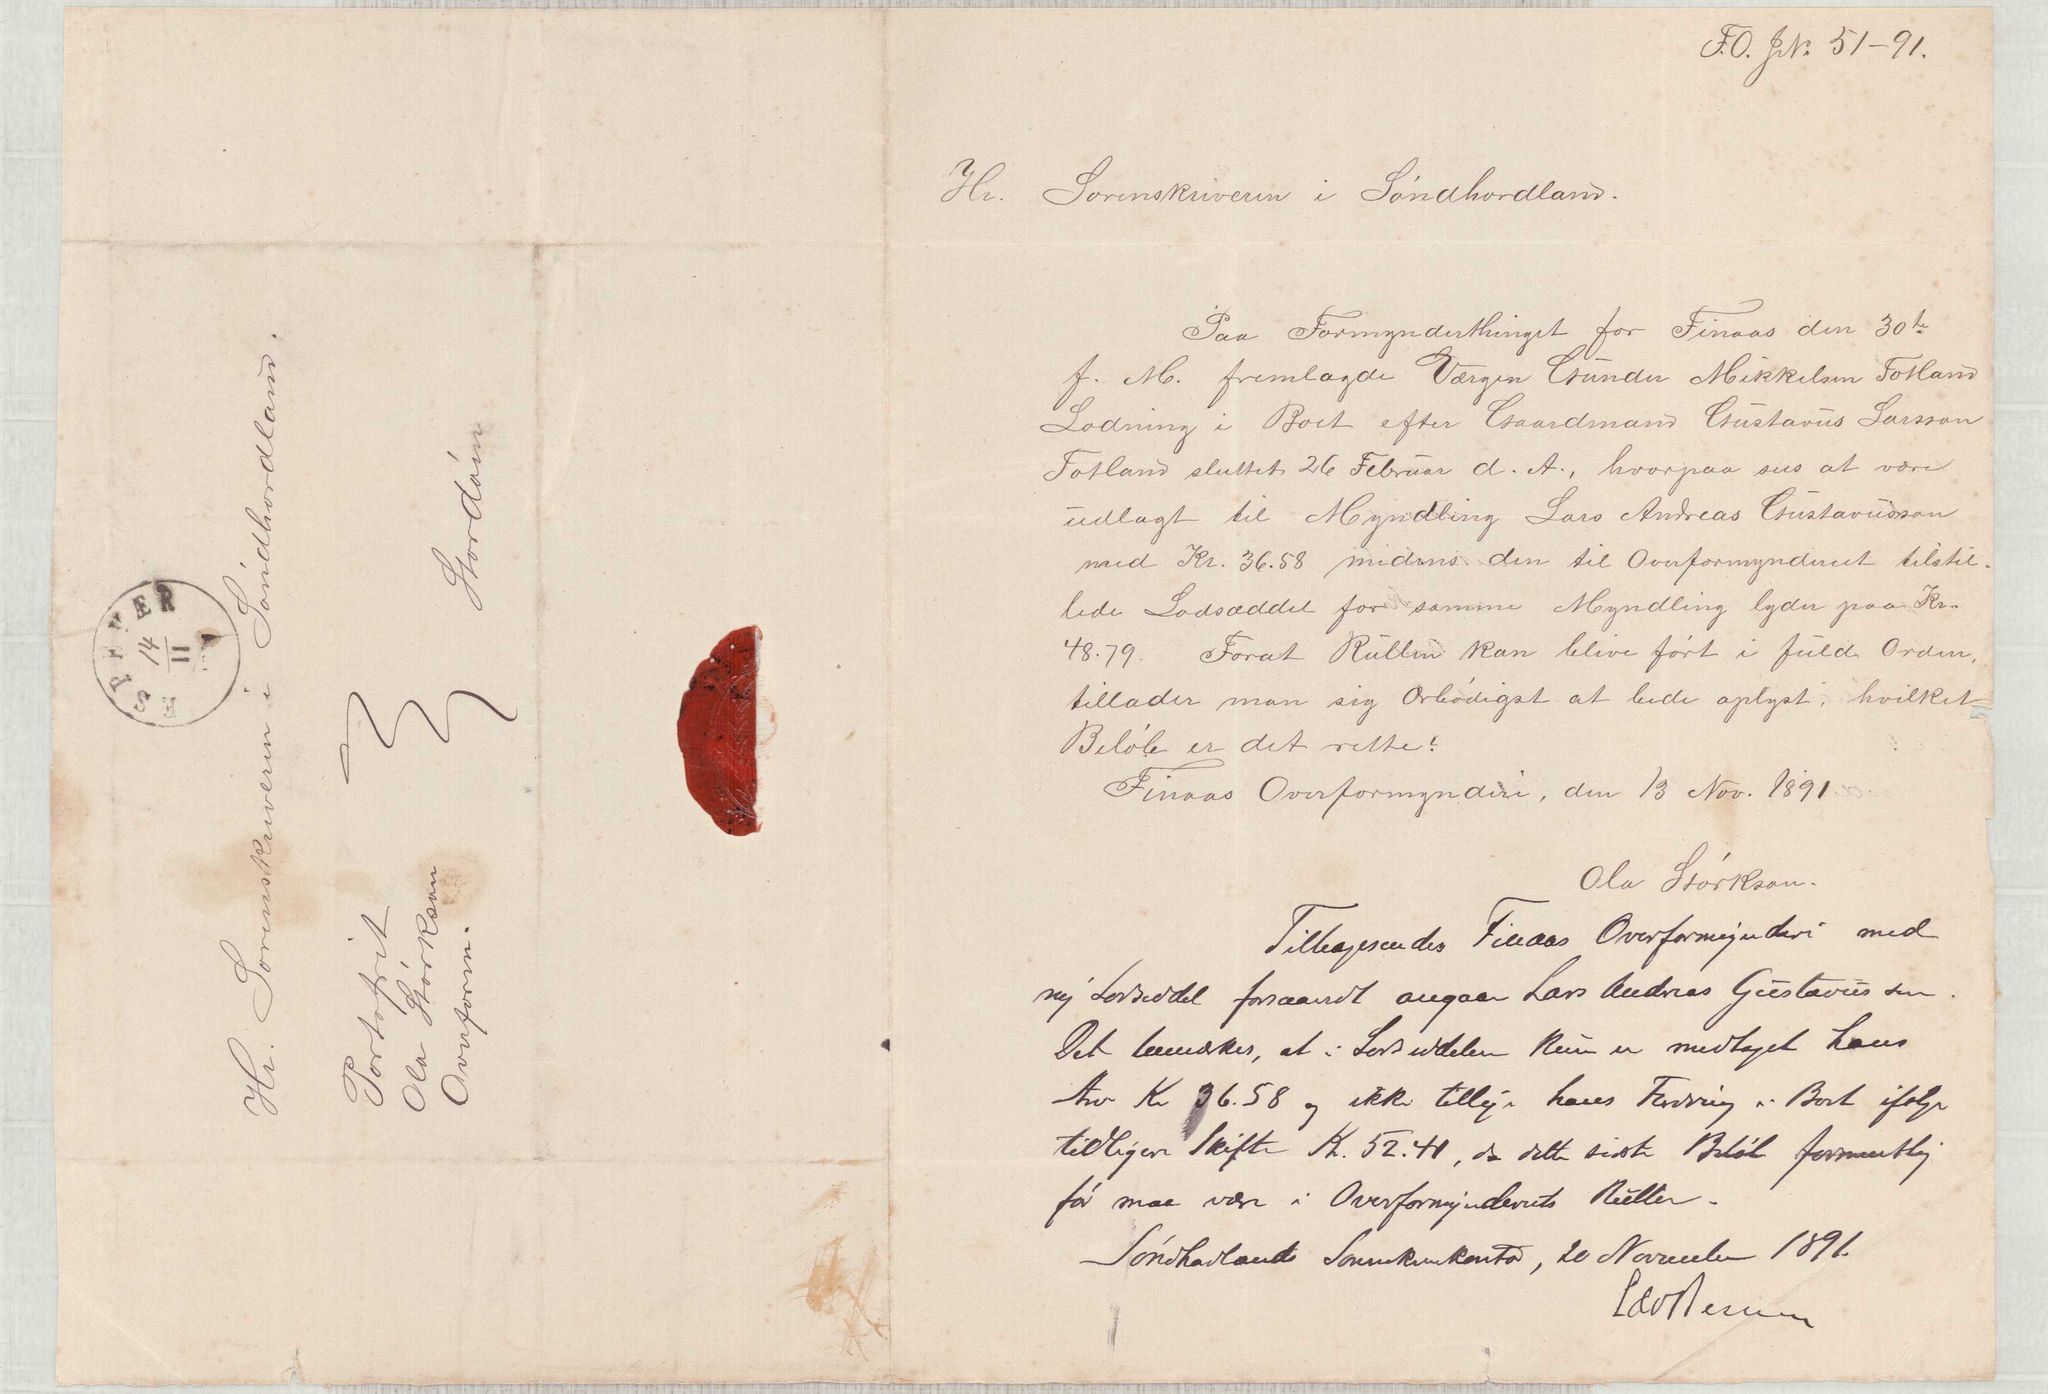 F.O. J.N. 51-91.
Hr. Sorenskriveren i Söndhordland.
Paa Formynderthinget for Finaas den 30te
f. M. fremlagde Værgen Gunder Mikkelsen Totland
Lodning i Boet efter Gaardmand Gustavus Larsson
Totland sluttet 26 Februar d. A., hvorpaa sees at være
udlagt til Myndling Lars Andreas Gustavusson
med Kr. 36.58 midens den til Overformynderiet tilstil-
lede Lodsæddel for samme Myndling lyder paa Kr.
48.79. Forat Rullen kan blive fört i fuld Orden,
tillader man sig Ærbödigst at bede oplyst, hvilket
Belöb er det rette?
Finaas Overformynderi, den 13 Nov. 1891
Ola Störkson.
Tilbagesendes Finaas Overformynderi med
ny Lodseddel forsaavidt angaar Lars Andreas Gustavussen.
Det bemærkes, at i Lodseddelen kun er medtaget hans
Arv Kr 36.58 og ikke tillige hans Fordring i Boet ifølge
tidligere Skifte Kr. 52.41, da dette sidste Beløb formentlig
før maa være i Overformynderiets Rulle.
Söndhordlands Sorenskriverkontor, 20 November 1891.
Hr. Sorenskriveren i Söndhordland.
Portofrit
Ola Störkson
Overform.
Stordöen
ESPEVÆR
14
11